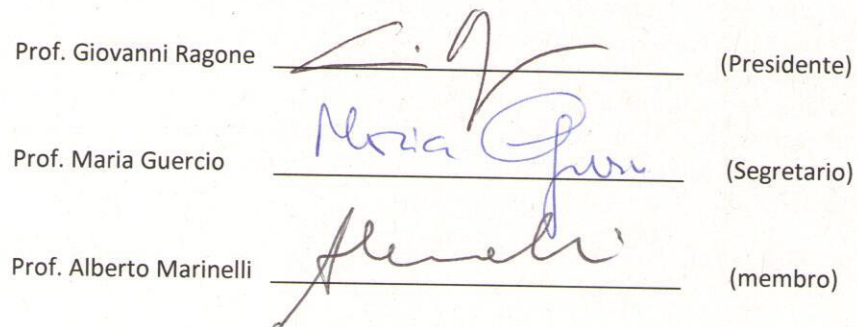 Prof. Giovanni Ragone (Presidente)
Prof. Maria Guercio Maria (Segretario)
Prof. Alberto Marinelli (membro)